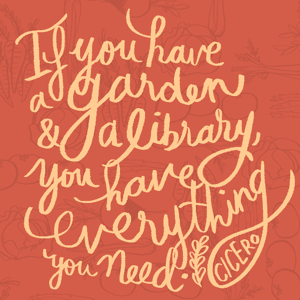 If you have
a garden
& a library,
you have
everything
you need.
CICERO